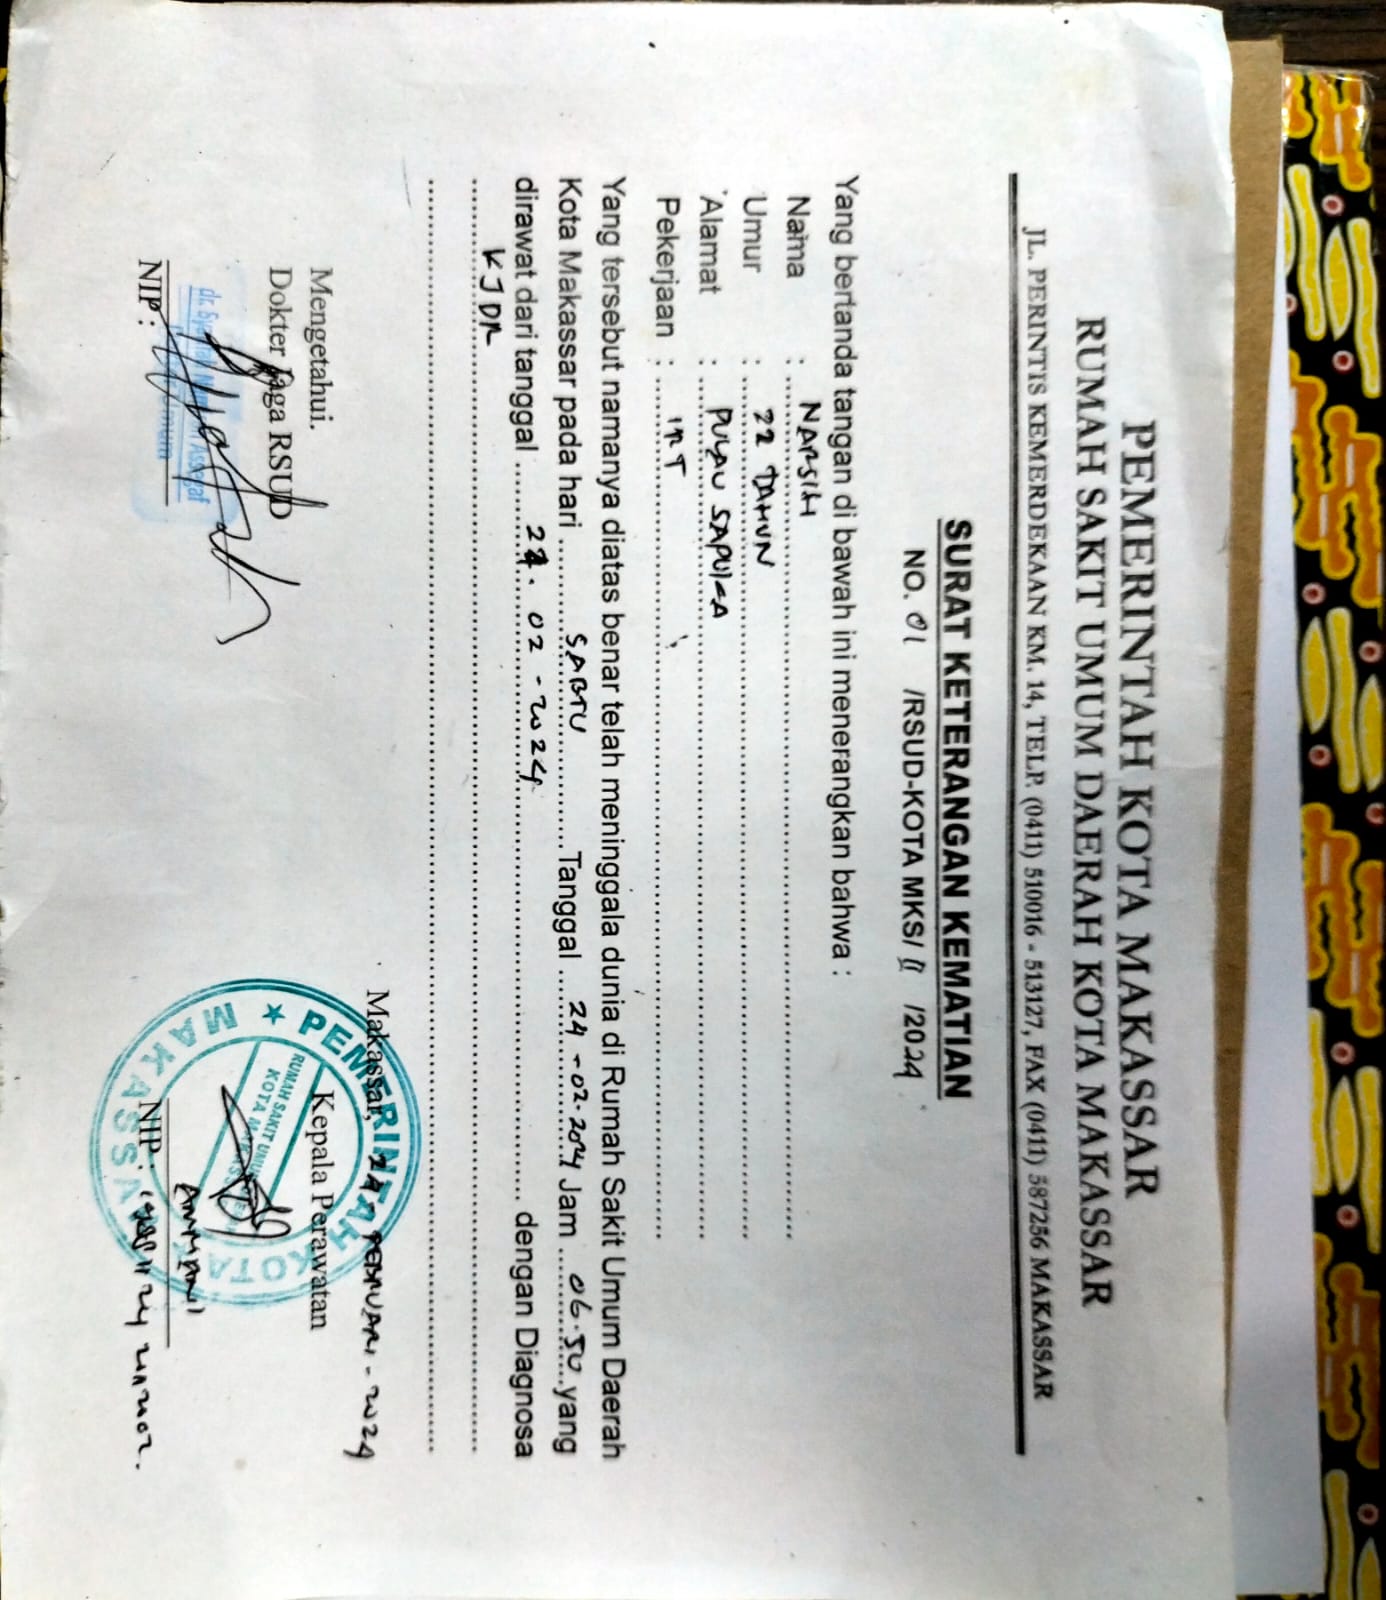 PEMERINTAH KOTA MAKASSAR
RUMAH SAKIT UMUM DAERAH KOTA MAKASSAR
JL. PERINTIS KEMERDEKAAN KM. 14, TELP. (0411) 510016 - 513127, FAX (0411) 587256 MAKASSAR
SURAT KETERANGAN KEMATIAN
NO. 01 /RSUD-KOTA MKS/ II /2024
Yang bertanda tangan di bawah ini menerangkan bahwa :
Nama : NARSIH
Umur : 22 TAHUN
Alamat : PULAU SAPUKA
Pekerjaan : IRT
Yang tersebut namanya diatas benar telah meninggala dunia di Rumah Sakit Umum Daerah
Kota Makassar pada hari SABTU Tanggal 24-02-2024 Jam 06.50 yang
dirawat dari tanggal 02-2024 dengan Diagnosa
KJDR
Makassar, FEBRUARI-2024
Mengetahui. Kepala Perawatan
Dokter Jaga RSUD
PEMERINTAH KOTA
MAKASSAR
RUMAH SAKIT UMUM
KOTA MAKASSAR
dr. Assegaf
Umum
AMMANI
NIP :
NIP :